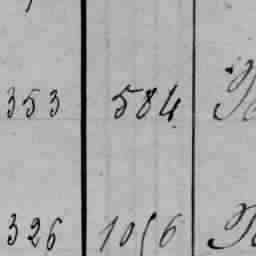 353 584
326 1056